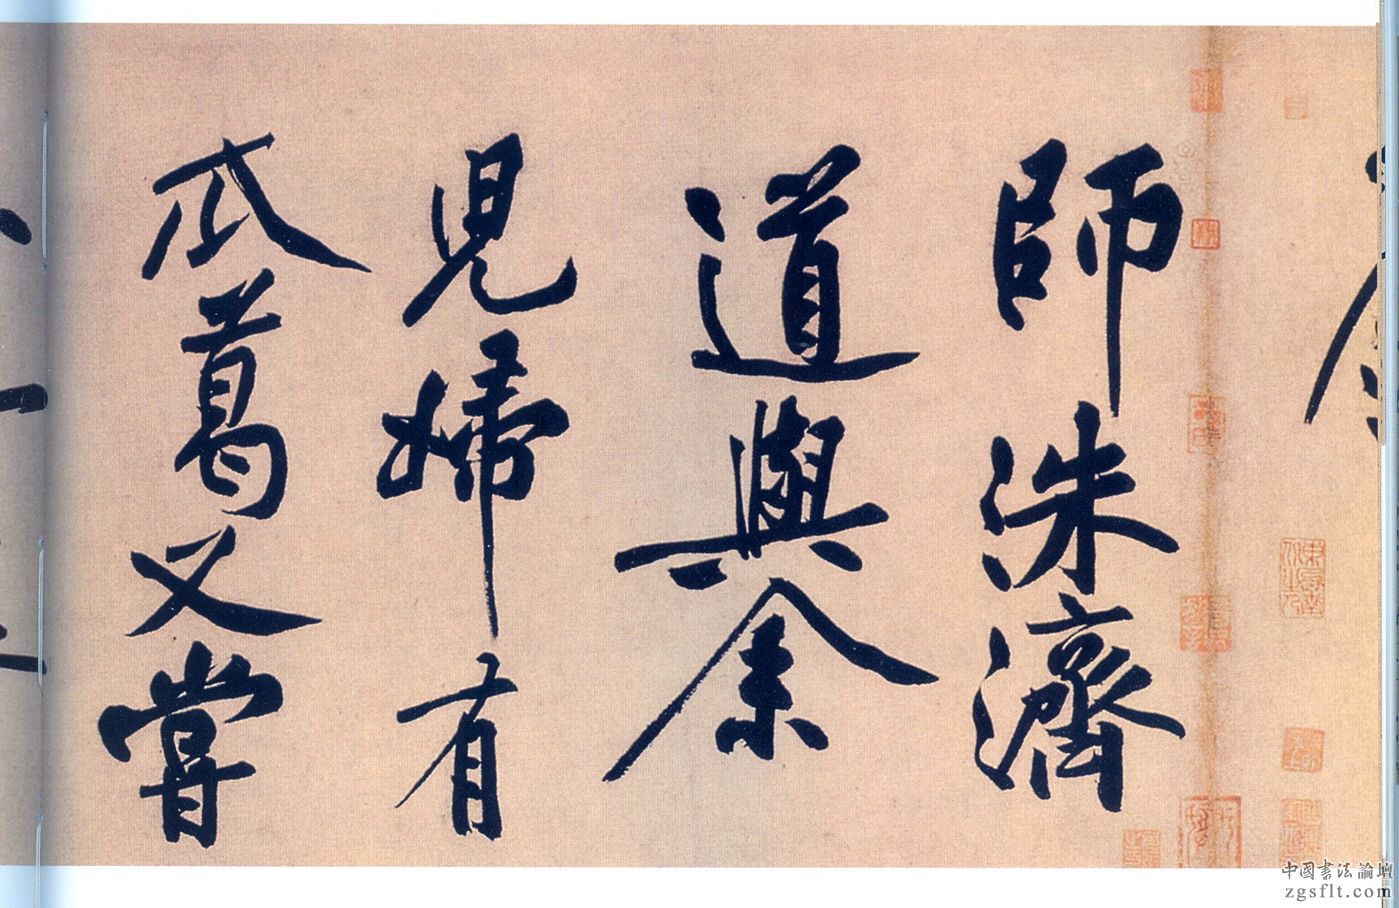 師洙濟
道與余
兒婦有
瓜葛又嘗
中国書法論壇
zgsflt.com